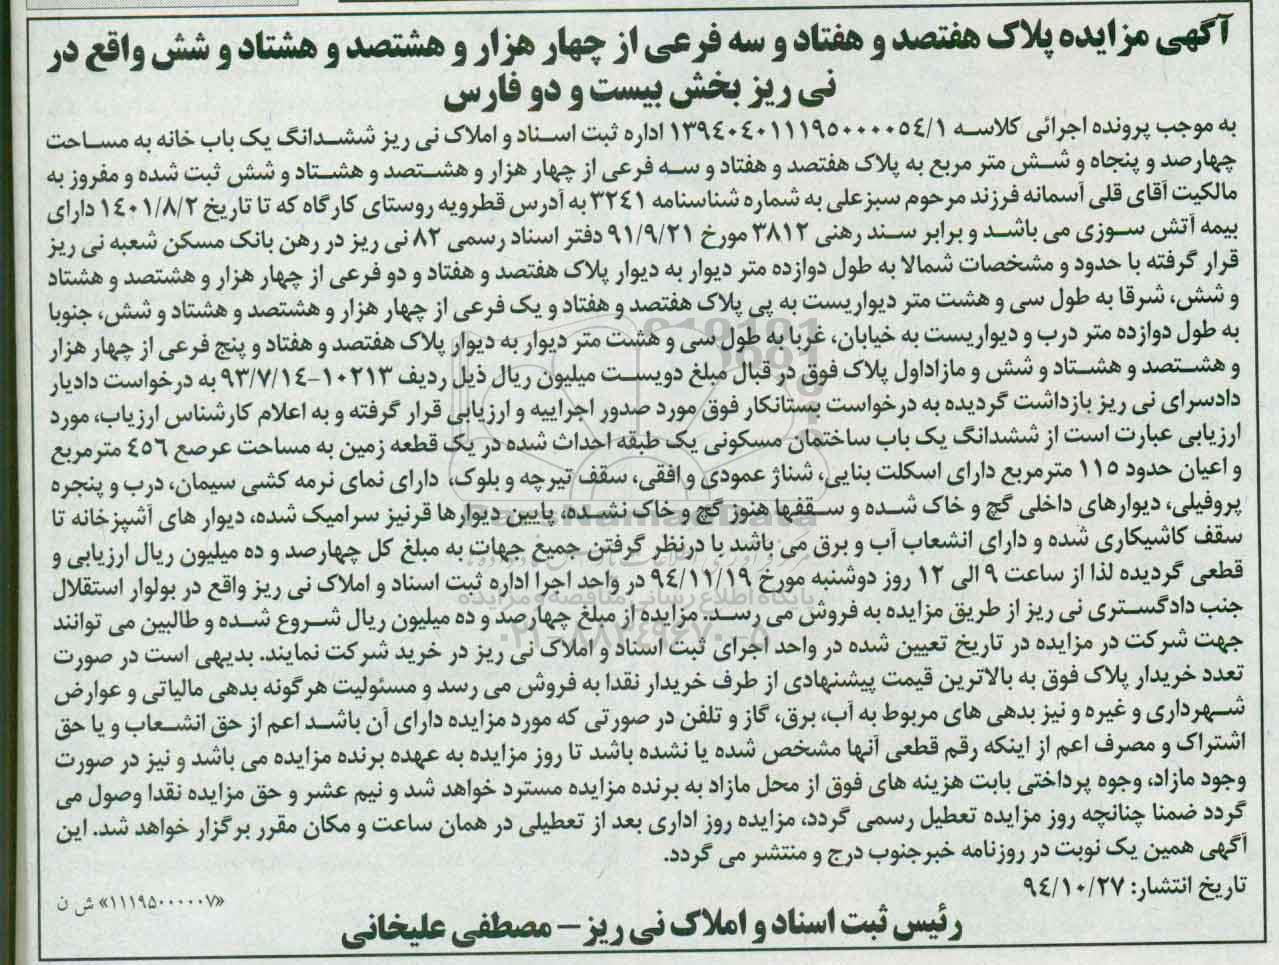 آگهی مزایده پلاک هفتصد و هفتاد و سه فرعی از چهار هزار و هشتصد و هشتاد و شش واقع در
نی ریز بخش بیست و دو فارس
به موجب پرونده اجرائی کلاسه ۱۳۹۴۰۴۰۱۱۱۹۵۰۰۰۰۵۴/۱ اداره ثبت اسناد و املاک نی ریز ششدانگ یک باب خانه به مساحت
چهارصد و پنجاه و شش متر مربع به پلاک هفتصد و هفتاد و سه فرعی از چهار هزار و هشتصد و هشتاد و شش ثبت شده و مفروز به
مالکیت آقای قلی آسمانه فرزند مرحوم سبزعلی به شماره شناسنامه ۳۲۴۱ به آدرس قطرویه روستای کارگاه که تا تاریخ ۱۴۰۱/۸/۲ دارای
بیمه آتش سوزی می باشد و برابر سند رهنی ۳۸۱۲ مورخ ۹۱/۹/۲۱ دفتر اسناد رسمی ۸۲ نی ریز در رهن بانک مسکن شعبه نی ریز
قرار گرفته با حدود و مشخصات شمالا به طول دوازده متر دیوار به دیوار پلاک هفتصد و هفتاد و دو فرعی از چهار هزار و هشتصد و هشتاد
و شش، شرقا به طول سی و هشت متر دیواریست به پی پلاک هفتصد و هفتاد و یک فرعی از چهار هزار و هشتصد و هشتاد و شش، جنوبا
به طول دوازده متر درب و دیواریست به خیابان، غربا به طول سی و هشت متر دیوار به دیوار پلاک هفتصد و هفتاد و پنج فرعی از چهار هزار
و هشتصد و هشتاد و شش و مازاداول پلاک فوق در قبال مبلغ دویست میلیون ریال ذیل ردیف ۱۰۲۱۳-۹۳/۷/۱۴ به درخواست دادیار
دادسرای نی ریز بازداشت گردیده به درخواست بستانکار فوق مورد صدور اجراییه و ارزیابی قرار گرفته و به اعلام کارشناس ارزیاب، مورد
ارزیابی عبارت است از ششدانگ یک باب ساختمان مسکونی یک طبقه احداث شده در یک قطعه زمین به مساحت عرصع ۴۵۶ مترمربع
و اعیان حدود ۱۱۵ مترمربع دارای اسکلت بنایی، شناژ عمودی و افقی، سقف تیرچه و بلوک، دارای نمای نرمه کشی سیمان، درب و پنجره
پروفیلی، دیوارهای داخلی گچ و خاک شده و سقفها هنوز گچ و خاک نشده، پایین دیوارها قرنیز سرامیک شده، دیوار های آشپزخانه تا
سقف کاشیکاری شده و دارای انشعاب آب و برق می باشد با درنظر گرفتن جمیع جهات به مبلغ کل چهارصد و ده میلیون ریال ارزیابی و
قطعی گردیده لذا از ساعت ۹ الی ۱۲ روز دوشنبه مورخ ۹۴/۱۱/۱۹ در واحد اجرا اداره ثبت اسناد و املاک نی ریز واقع در بولوار استقلال
جنب دادگستری نی ریز از طریق مزایده به فروش می رسد. مزایده از مبلغ چهارصد و ده میلیون ریال شروع شده و طالبین می توانند
جهت شرکت در مزایده در تاریخ تعیین شده در واحد اجرای ثبت اسناد و املاک نی ریز در خرید شرکت نمایند. بدیهی است در صورت
تعدد خریدار پلاک فوق به بالاترین قیمت پیشنهادی از طرف خریدار نقدا به فروش می رسد و مسئولیت هرگونه بدهی مالیاتی و عوارض
شهرداری و غیره و نیز بدهی های مربوط به آب، برق، گاز و تلفن در صورتی که مورد مزایده دارای آن باشد اعم از حق انشعاب و یا حق
اشتراک و مصرف اعم از اینکه رقم قطعی آنها مشخص شده یا نشده باشد تا روز مزایده به عهده برنده مزایده می باشد و نیز در صورت
وجود مازاد، وجوه پرداختی بابت هزینه های فوق از محل مازاد به برنده مزایده مسترد خواهد شد و نیم عشر و حق مزایده نقدا وصول می
گردد ضمنا چنانچه روز مزایده تعطیل رسمی گردد، مزایده روز اداری بعد از تعطیلی در همان ساعت و مکان مقرر برگزار خواهد شد. این
آگهی همین یک نوبت در روزنامه خبرجنوب درج و منتشر می گردد.
تاریخ انتشار: ۹۴/۱۰/۲۷
«۱۱۱۹۵۰۰۰۰۰۷» ش ن
رئیس ثبت اسناد و املاک نی ریز – مصطفی علیخانی